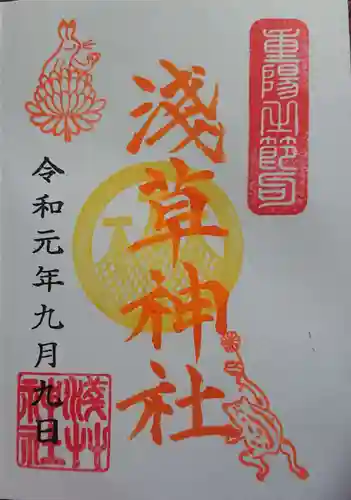 重陽之節句
淺草神社
令和元年九月九日
淺草
神社